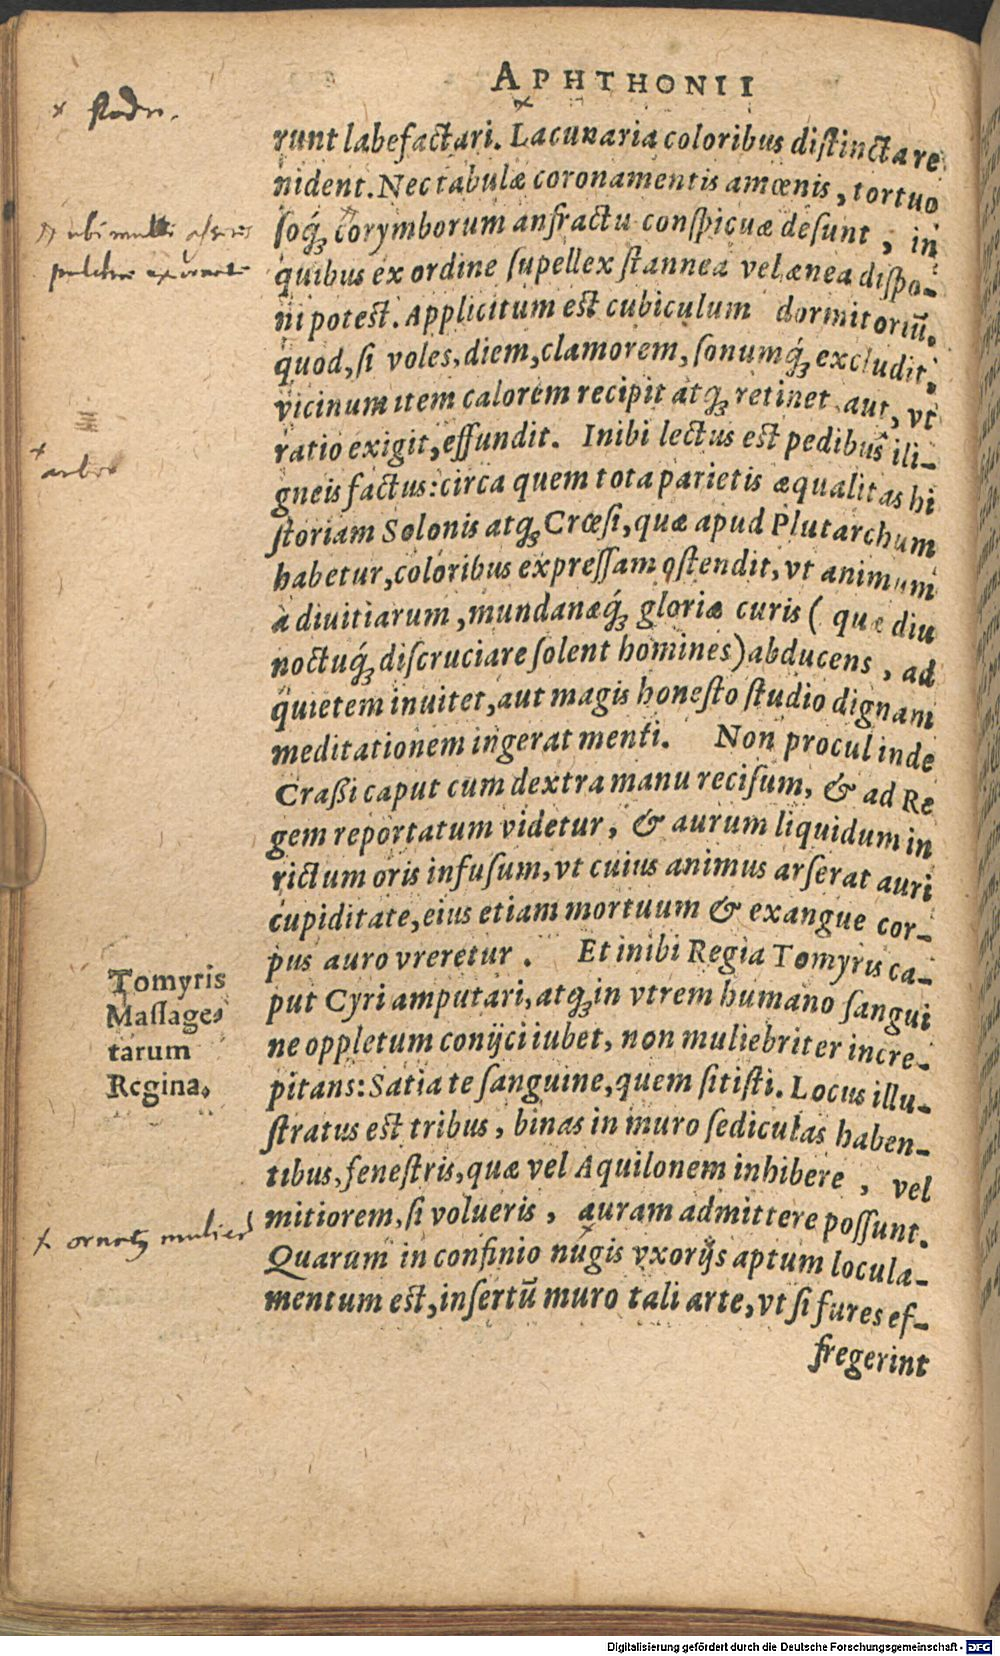 APHTHONII
runt labefactari. Lacunaria coloribus distincta re
nident. Nec tabulæ coronamentis amœnis, tortuo
soq́ꝫ corymborum anfractu conspicuæ desunt, in
quibus ex ordine supellex stannea vel ænea dispo-
ni potest. Applicitum est cubiculum dormitoriũ.
quod, si voles, diem, clamorem, sonumq́ꝫ excludit,
vicinum item calorem recipit atqꝫ retinet aut, vt
ratio exigit, effundit. Inibi lectus est pedibus ili-
gneis factus: circa quem tota parietis æqualitas hi
storiam Solonis atqꝫ Crœsi, quæ apud Plutarchum
habetur, coloribus expressam ostendit, vt animum
à diuitiarum, mundanæq́ꝫ gloriæ curis ( quæ diu
noctuq́ꝫ discruciare solent homines) abducens, ad
quietem inuitet, aut magis honesto studio dignam
meditationem ingerat menti. Non procul inde
Craßi caput cum dextra manu recisum, & ad Re
gem reportatum videtur, & aurum liquidum in
rictum oris infusum, vt cuius animus arserat auri
cupiditate, eius etiam mortuum & exangue cor-
pus auro vreretur. Et inibi Regia Tomyris ca-
put Cyri amputari, atqꝫ in vtrem humano sangui
ne oppletum conijci iubet, non muliebriter incre-
pitans: Satia te sanguine, quem sitisti. Locus illu-
stratus est tribus, binas in muro sediculas haben-
tibus, fenestris, quæ vel Aquilonem inhibere, vel
mitiorem, si volueris, auram admittere possunt.
Quarum in confinio nugis vxorijs aptum locula-
mentum est, insertũ muro tali arte, vt si fures ef-
fregerint
Tomyris
Massage-
tarum
Regina.
ubi multi
Digitalisierung gefördert durch die Deutsche Forschungsgemeinschaft - DFG